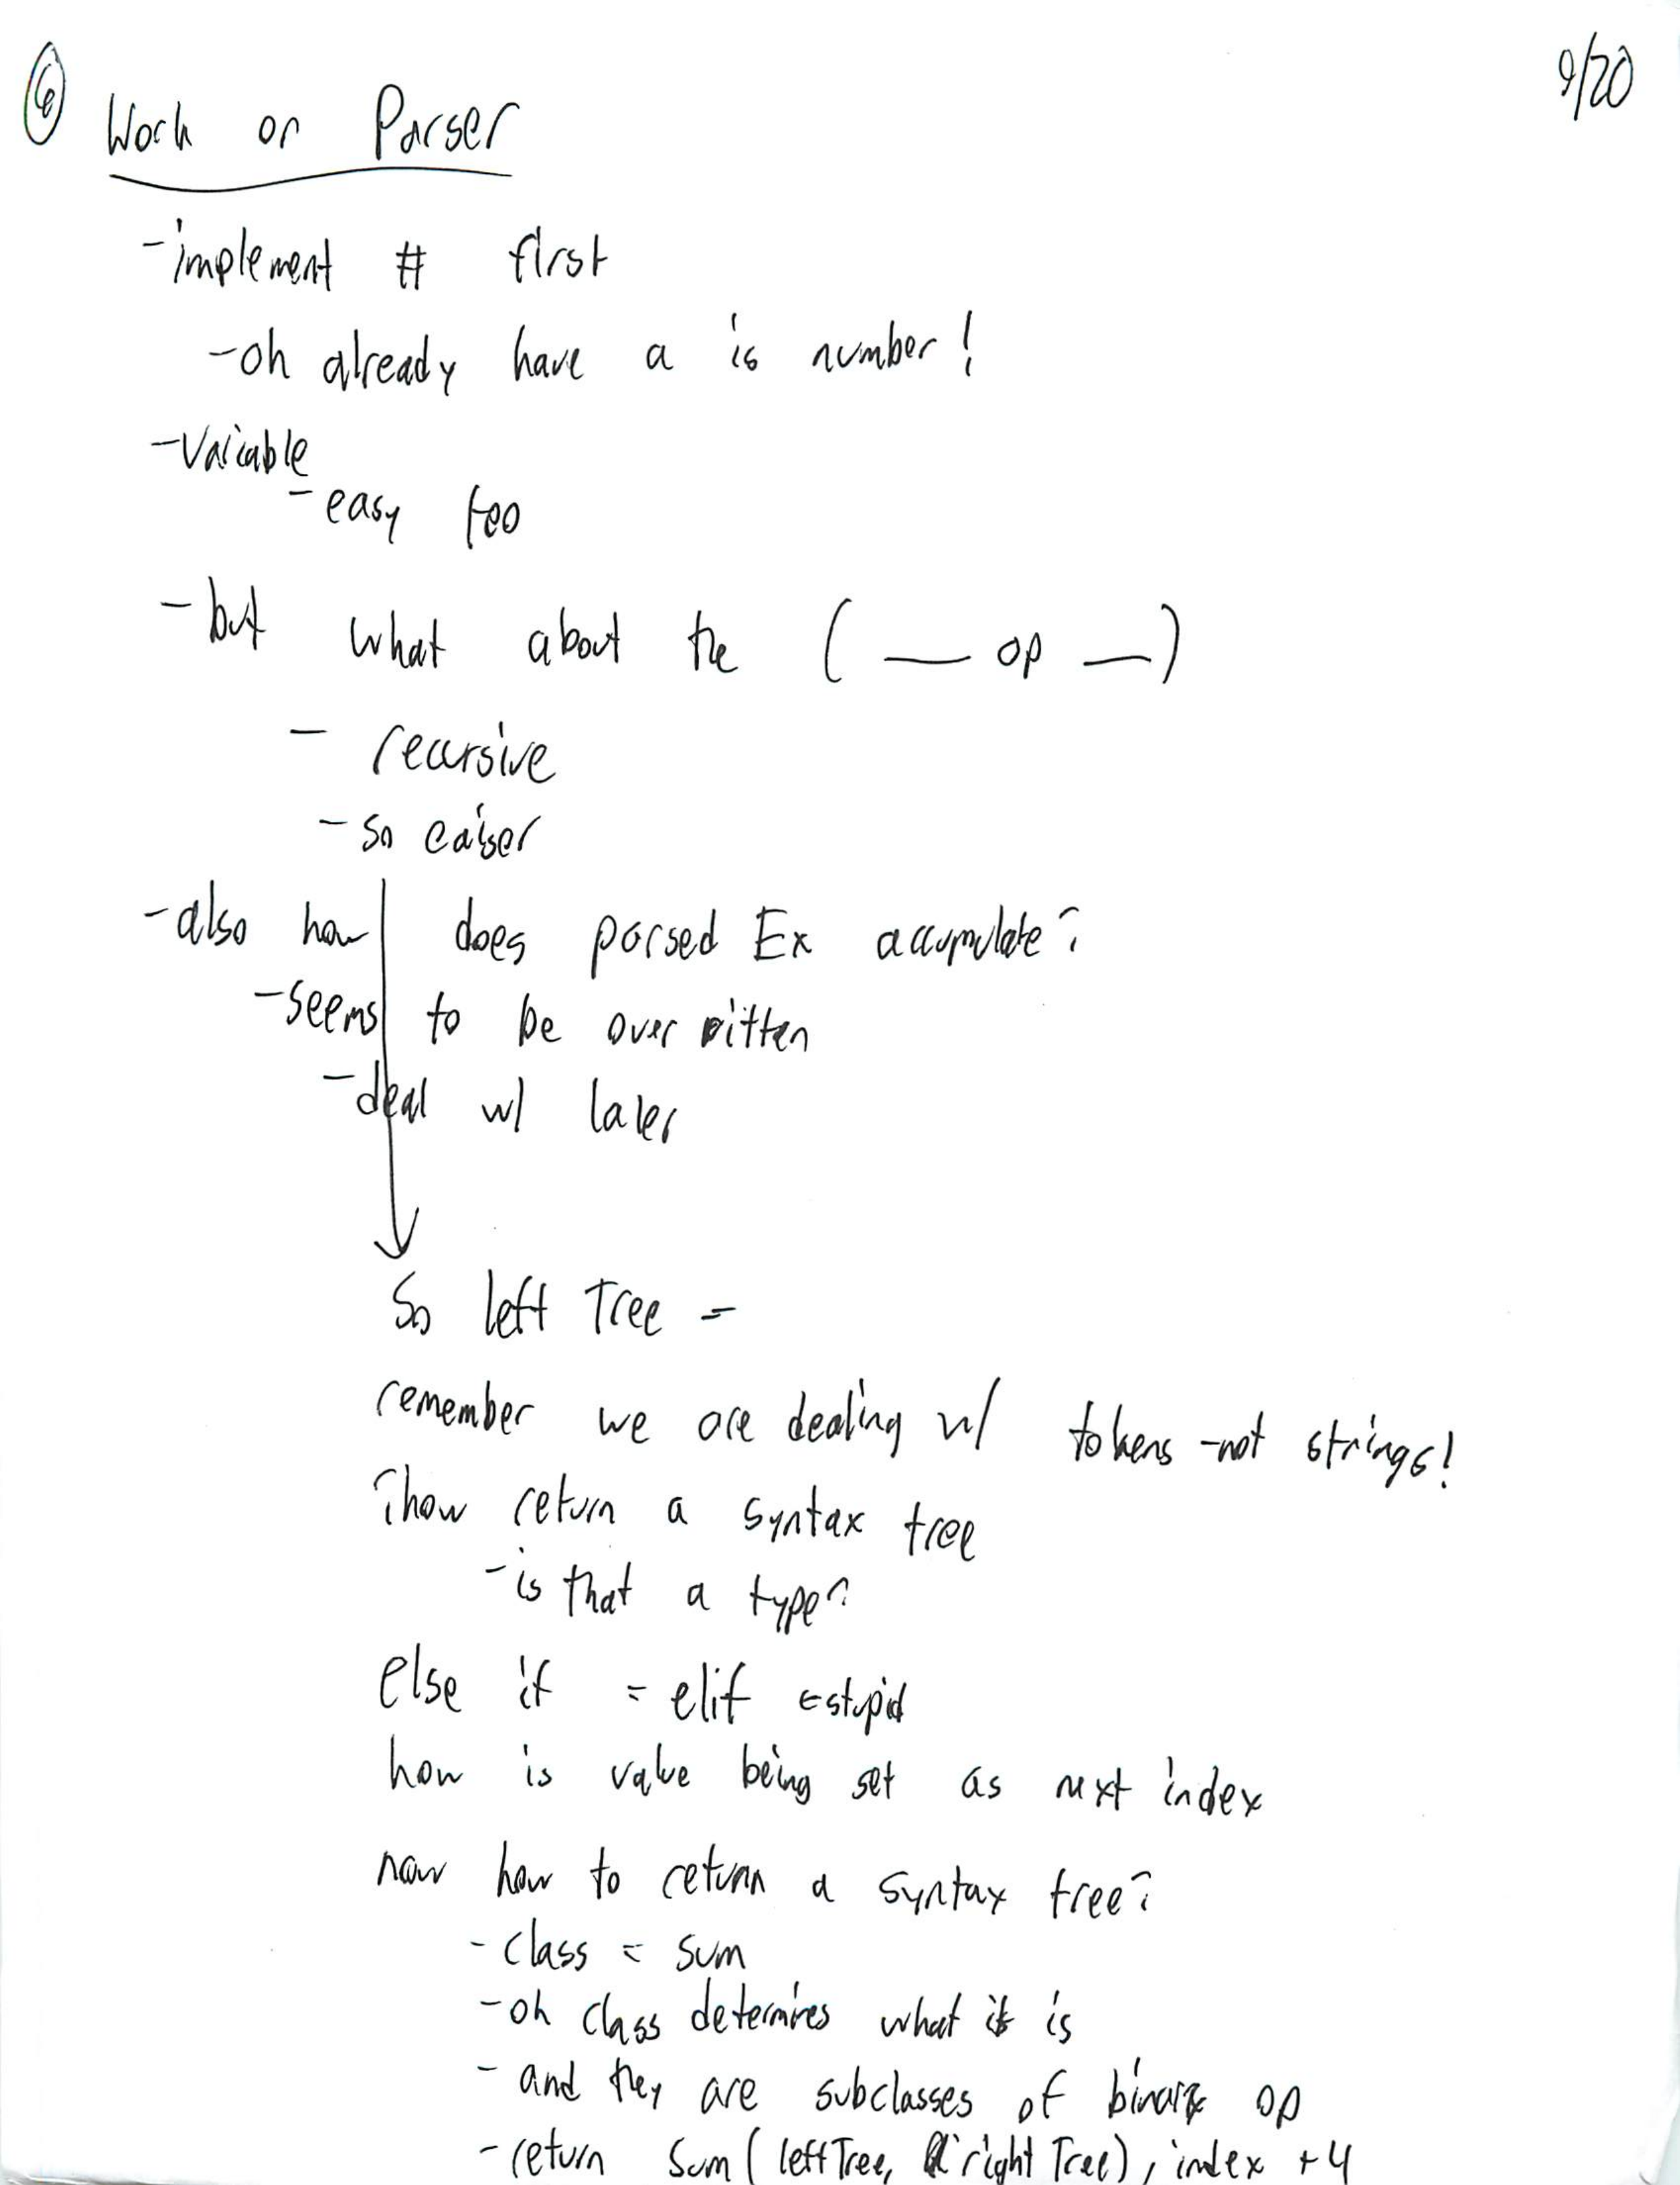 ⑥ Work on Parser
9/20
-implement # first
-oh already have a is number!
-Variable
-easy too
-but what about the ( __ op __ )
- recursive
- so eaiser
-also how does parsed Ex accumulate?
-seems to be over ritten
-deal w/ later
So left Tree =
remember we are dealing w/ tokens -not strings!
?how return a syntax tree
-is that a type?
else if = elif ←stupid
how is value being set as next index
now how to return a syntax tree?
- class = sum
-oh class determines what it is
- and they are subclasses of binary op
-return Sum ( leftTree, right Tree), index +4